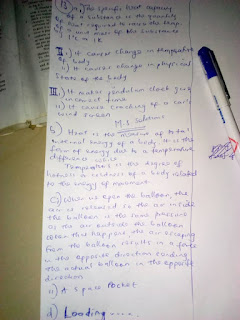 i) The specific heat capacity
of a substance is the quantity
of heat required to raise the temp
of a unit mass of the substance
by 1°C or 1K
II i) It causes change in temperature
of body
ii) It causes change in physical
state of the body
III i) It makes pendulum clock gain
or lose time
ii) It causes cracking of a car's
wind screen
M.S Solutions
b) Heat is the measure of total
internal energy of a body. It is the
form of energy due to a temperature
difference while
Temperature is the degree of
hotness or coldness of a body related
to the energy of movement
C) When we open the balloon, the
air is released so the air inside
the balloon is the same pressure
as the air outside the balloon
when that happens the air escaping
from the balloon results in a force
in the opposite direction sending
the balloon in the opposite
direction
ii) A space rocket
d) Loading.....